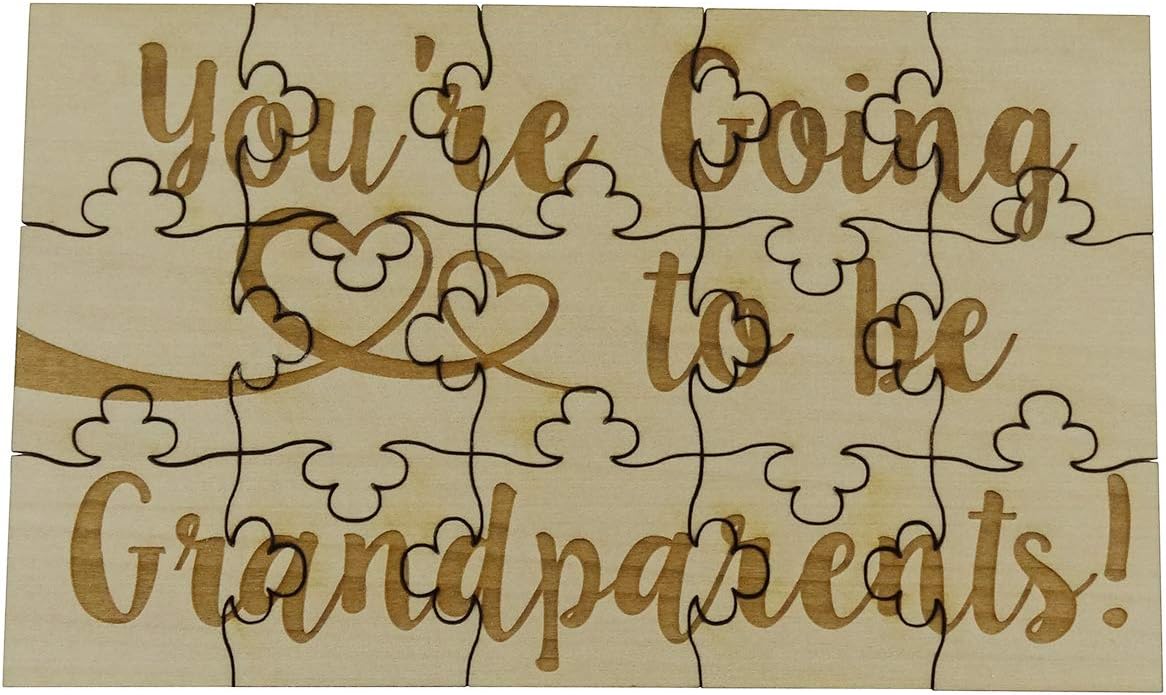 You're Going
to be
Grandparents!